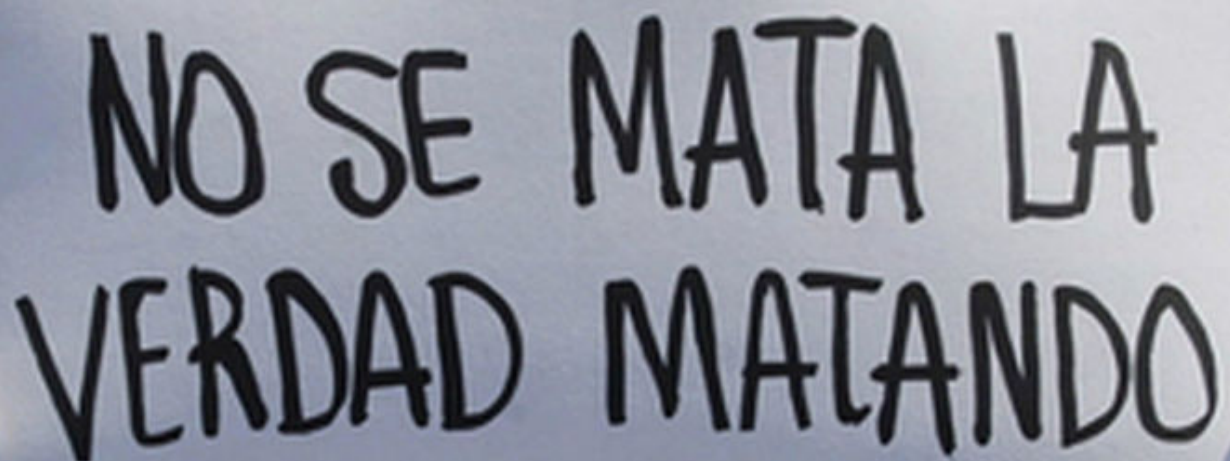 NO SE MATA LA
VERDAD MATANDO